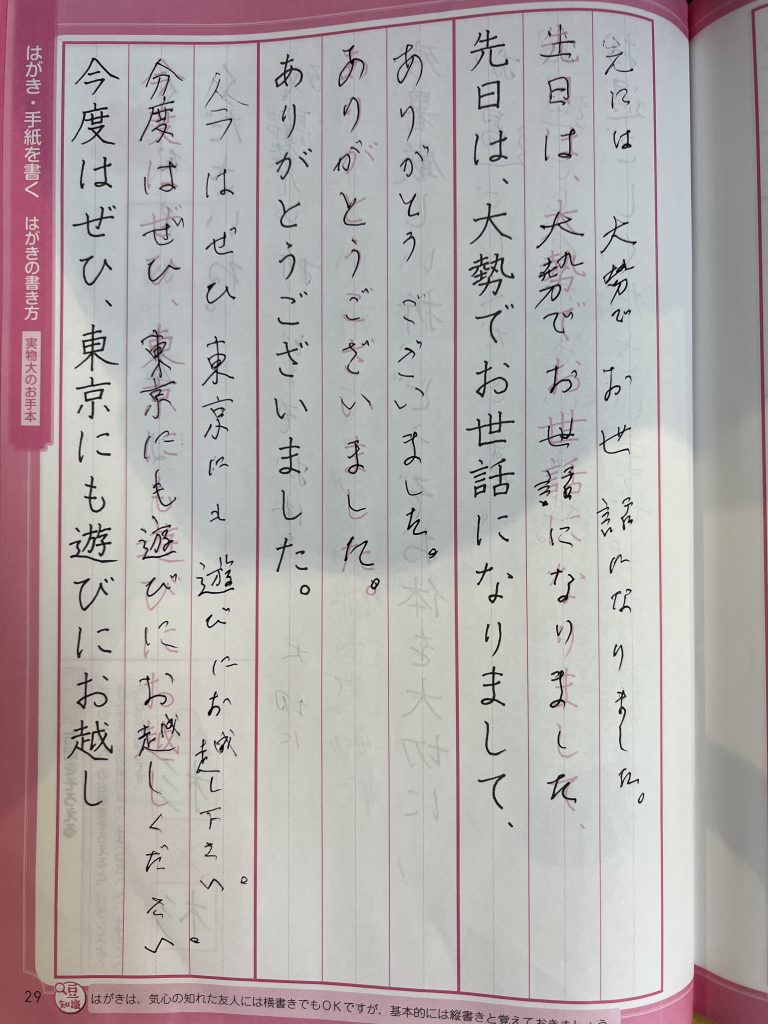 はがき・手紙を書く はがきの書き方 実物大のお手本
先には 大勢で お世話になりました。
先日は、大勢でお世話になりました
先日は、大勢でお世話になりまして、
ありがとう ございました。
ありがとうございました。
ありがとうございました。
今はぜひ 東京にも遊びにお越し下さい。
今度はぜひ、東京にも遊びにお越しください。
今度はぜひ、東京にも遊びにお越し
29
豆知識
はがきは、気心の知れた友人には横書きでもOKですが、基本的には縦書きと覚えておきましょう